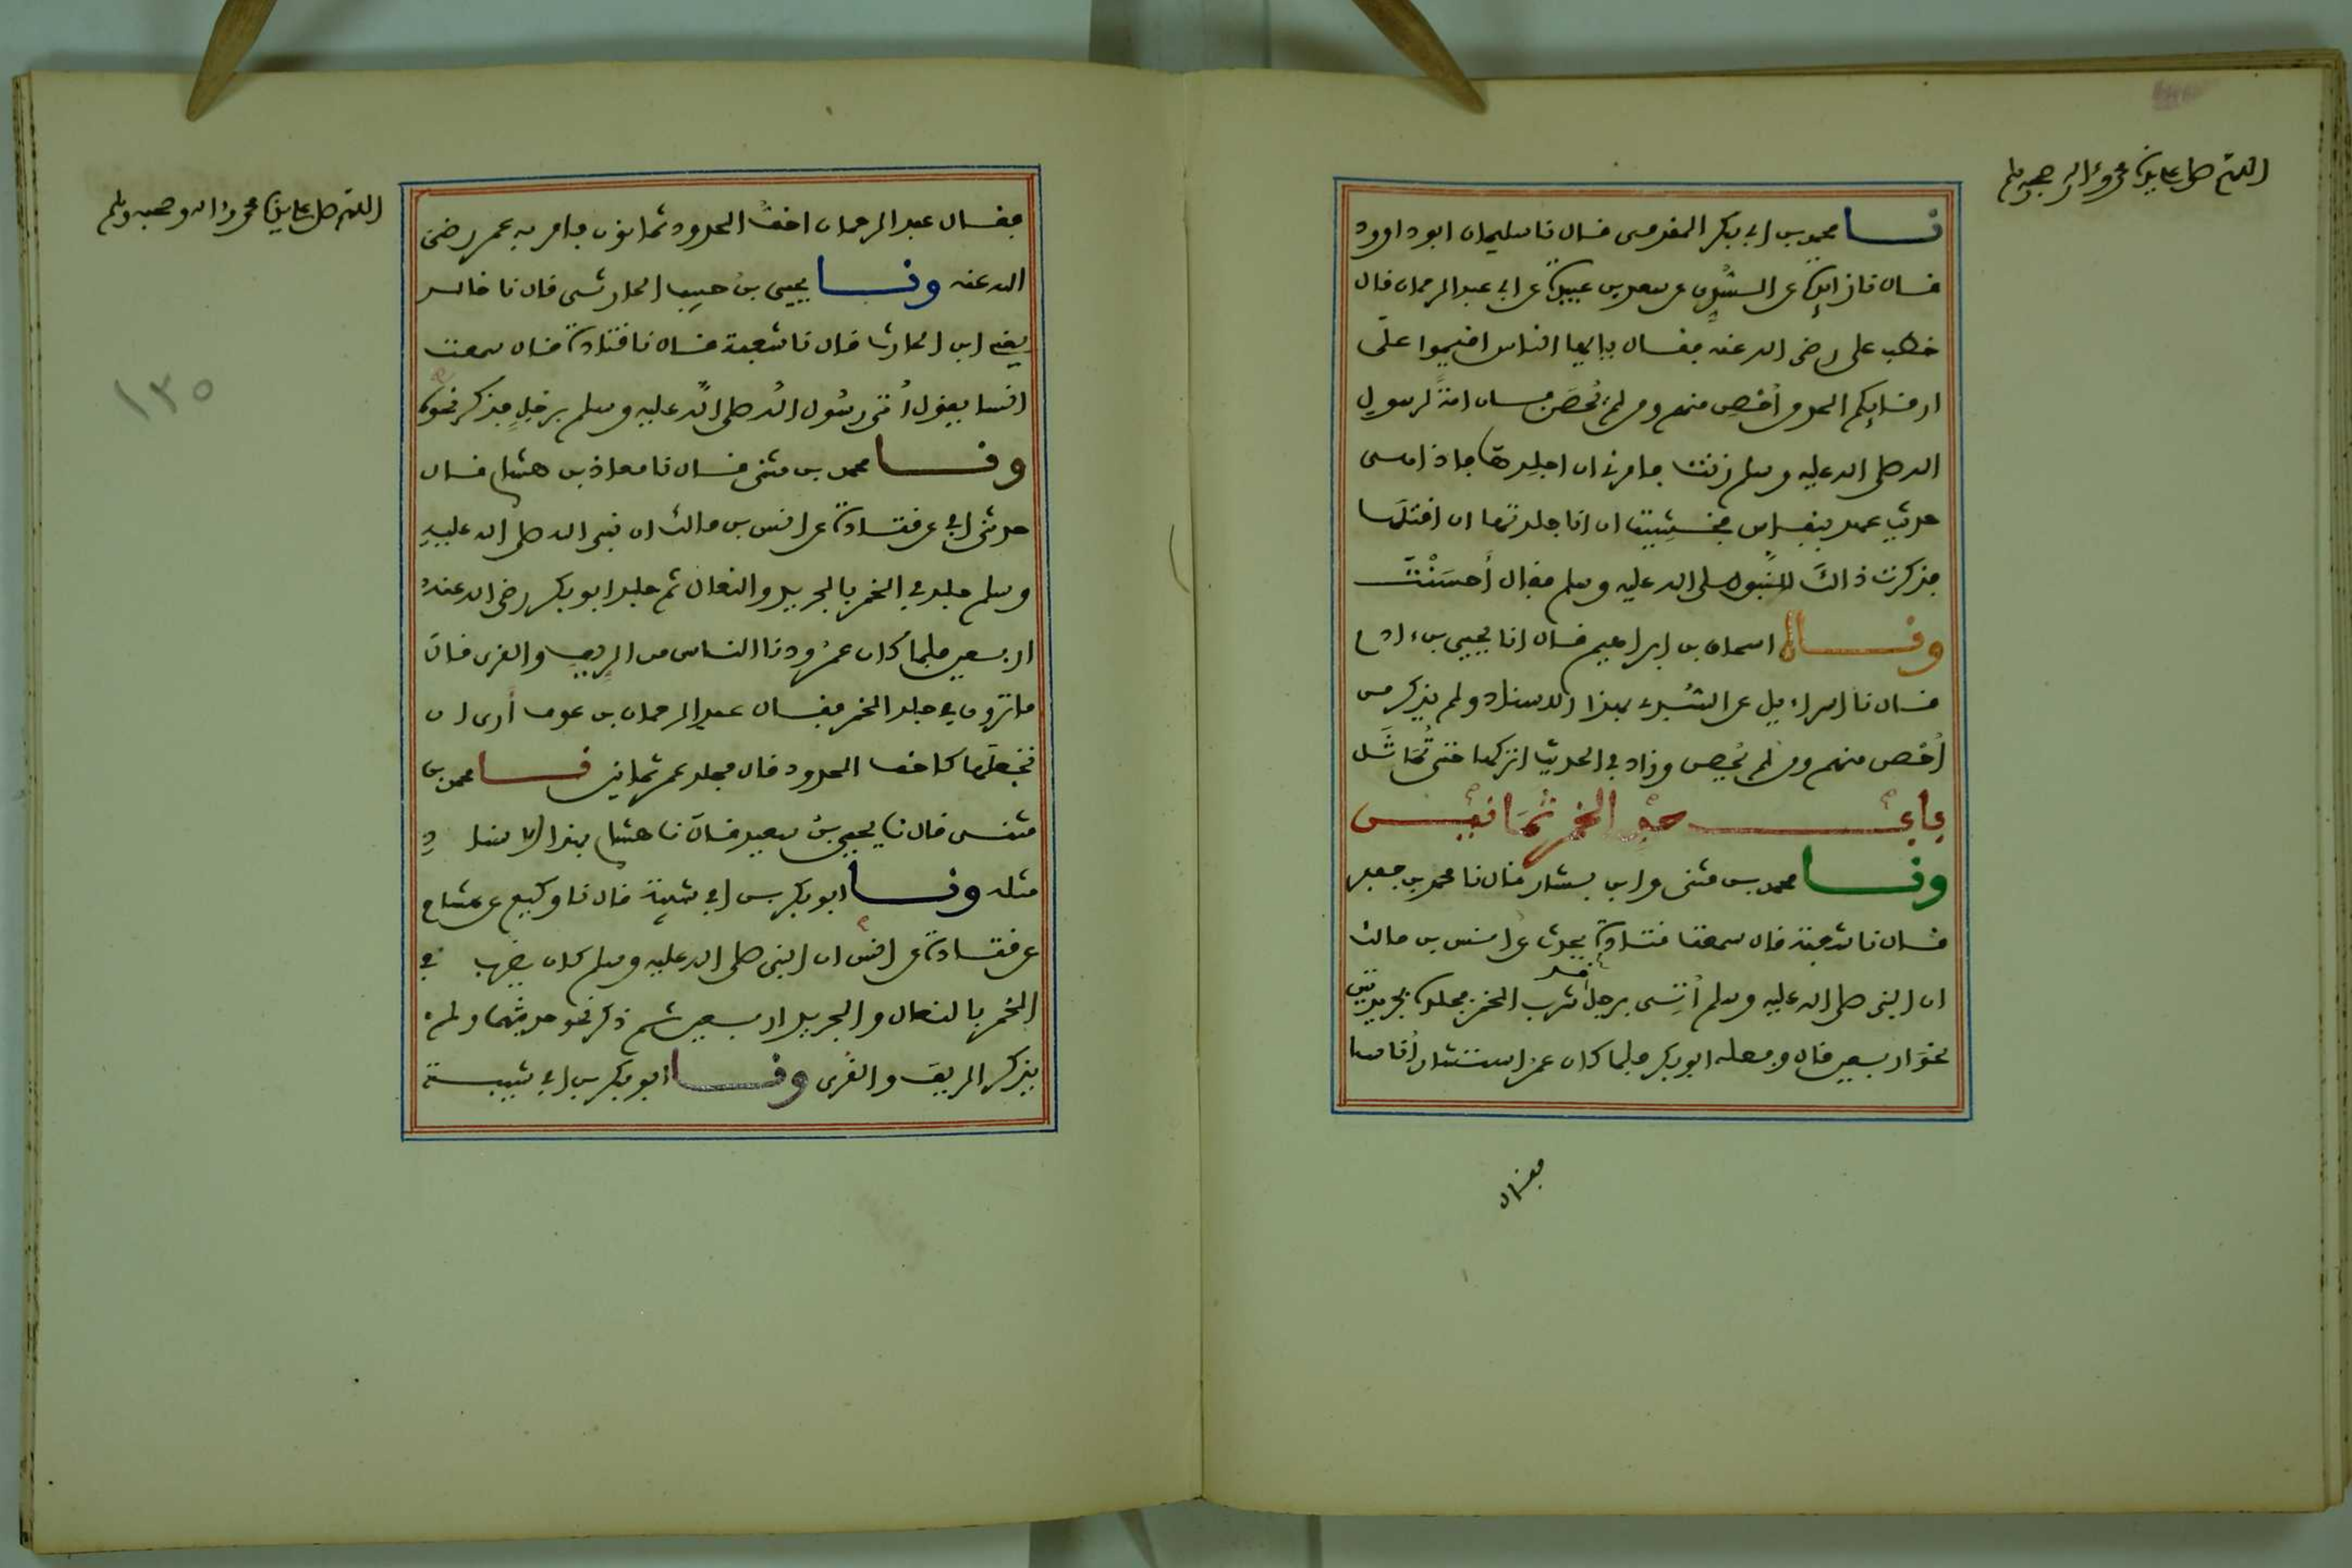 اللهم صل على سيدنا محمد وءاله وصحبه وسلم
نا محمد بن ابي بكر المقدمي قال نا سليمان ابو داوود
قال نا زايدة عن السُّدِّي عن سعد بن عبيدة عن ابي عبد الرحمان قال
خطب علي رضي الله عنه فقال يا ايها الناس اقيموا على
ارقايكم الحد من أحْصِن منهم ومن لم يُحصَن فان امةً لرسول
الله صلى الله عليه وسلم زنت فامرني ان اجلدها فاذا هي
حديث عهد بنفاس فخشِيت ان انا جلدتها ان اقتلَها
فذكرت ذالك للنبي صلى الله عليه وسلم فقال أحسَنْتَ
ونا اسحاق بن ابراهيم قال انا يحيى بن ءادم
قال نا اسراءيل عن السُّدي بهذا الاسناد ولم يذكر من
أحْصن منهم ومن لم يُحصن وزاد في الحديث اتركها حتى تُمَاثَل
باب حد الخمر ثمانين
ونا محمد بن مثنى وابن بشار قال نا محمد بن جعفر
قال نا شعبة قال سمعت قتادة يحدث عن انس بن مالك
ان النبي صلى الله عليه وسلم أتِي برجل قد شرب الخمر فجلده بجريدتين
نحو اربعين قال وفعله ابو بكر فلما كان عمر استشار الناس
فقال
اللهم صل على سيدنا محمد وءاله وصحبه وسلم
فقال عبد الرحمان اخفُّ الحدود ثمانون فامر به عمر رضي
الله عنه ونا يحيى بن حبيب الحارثي قال نا خالد
يعني ابن الحارث قال نا شعبة قال نا قتادة قال سمعت
انسا يقول أتى رسُول الله صلى الله عليه وسلم برجلٍ فذكر نحوه
ونا محمد بن مثنى قال نا معاذ بن هشام قال
حدثني ابي عن قتادة عن انس بن مالك ان نبي الله صلى الله عليه
وسلم جلد في الخمر بالجريد والنعال ثم جلد ابو بكر رضي الله عنه
اربعين فلما كان عمرُ ودنا الناس من الريف والقرى قال
ما ترون في جلد الخمر فقال عبد الرحمان بن عوف أرى ان
تجعلَها كاخف الحدود قال فجلد عمر ثمانين نا محمد بن
مثنى قال نا يحيى بن سعيد قال نا هشام بهذا الاسناد
مثله ونا ابو بكر بن ابي شيبة قال نا وكيع عن هشام
عن قتادة عن انس ان النبي صلى الله عليه وسلم كان يضرب في
الخمر بالنعال والجريد اربعين ثم ذكر نحو حديثهما ولم
يذكر الريف والقرى ونا ابو بكر بن ابي شيبة
١٣٥